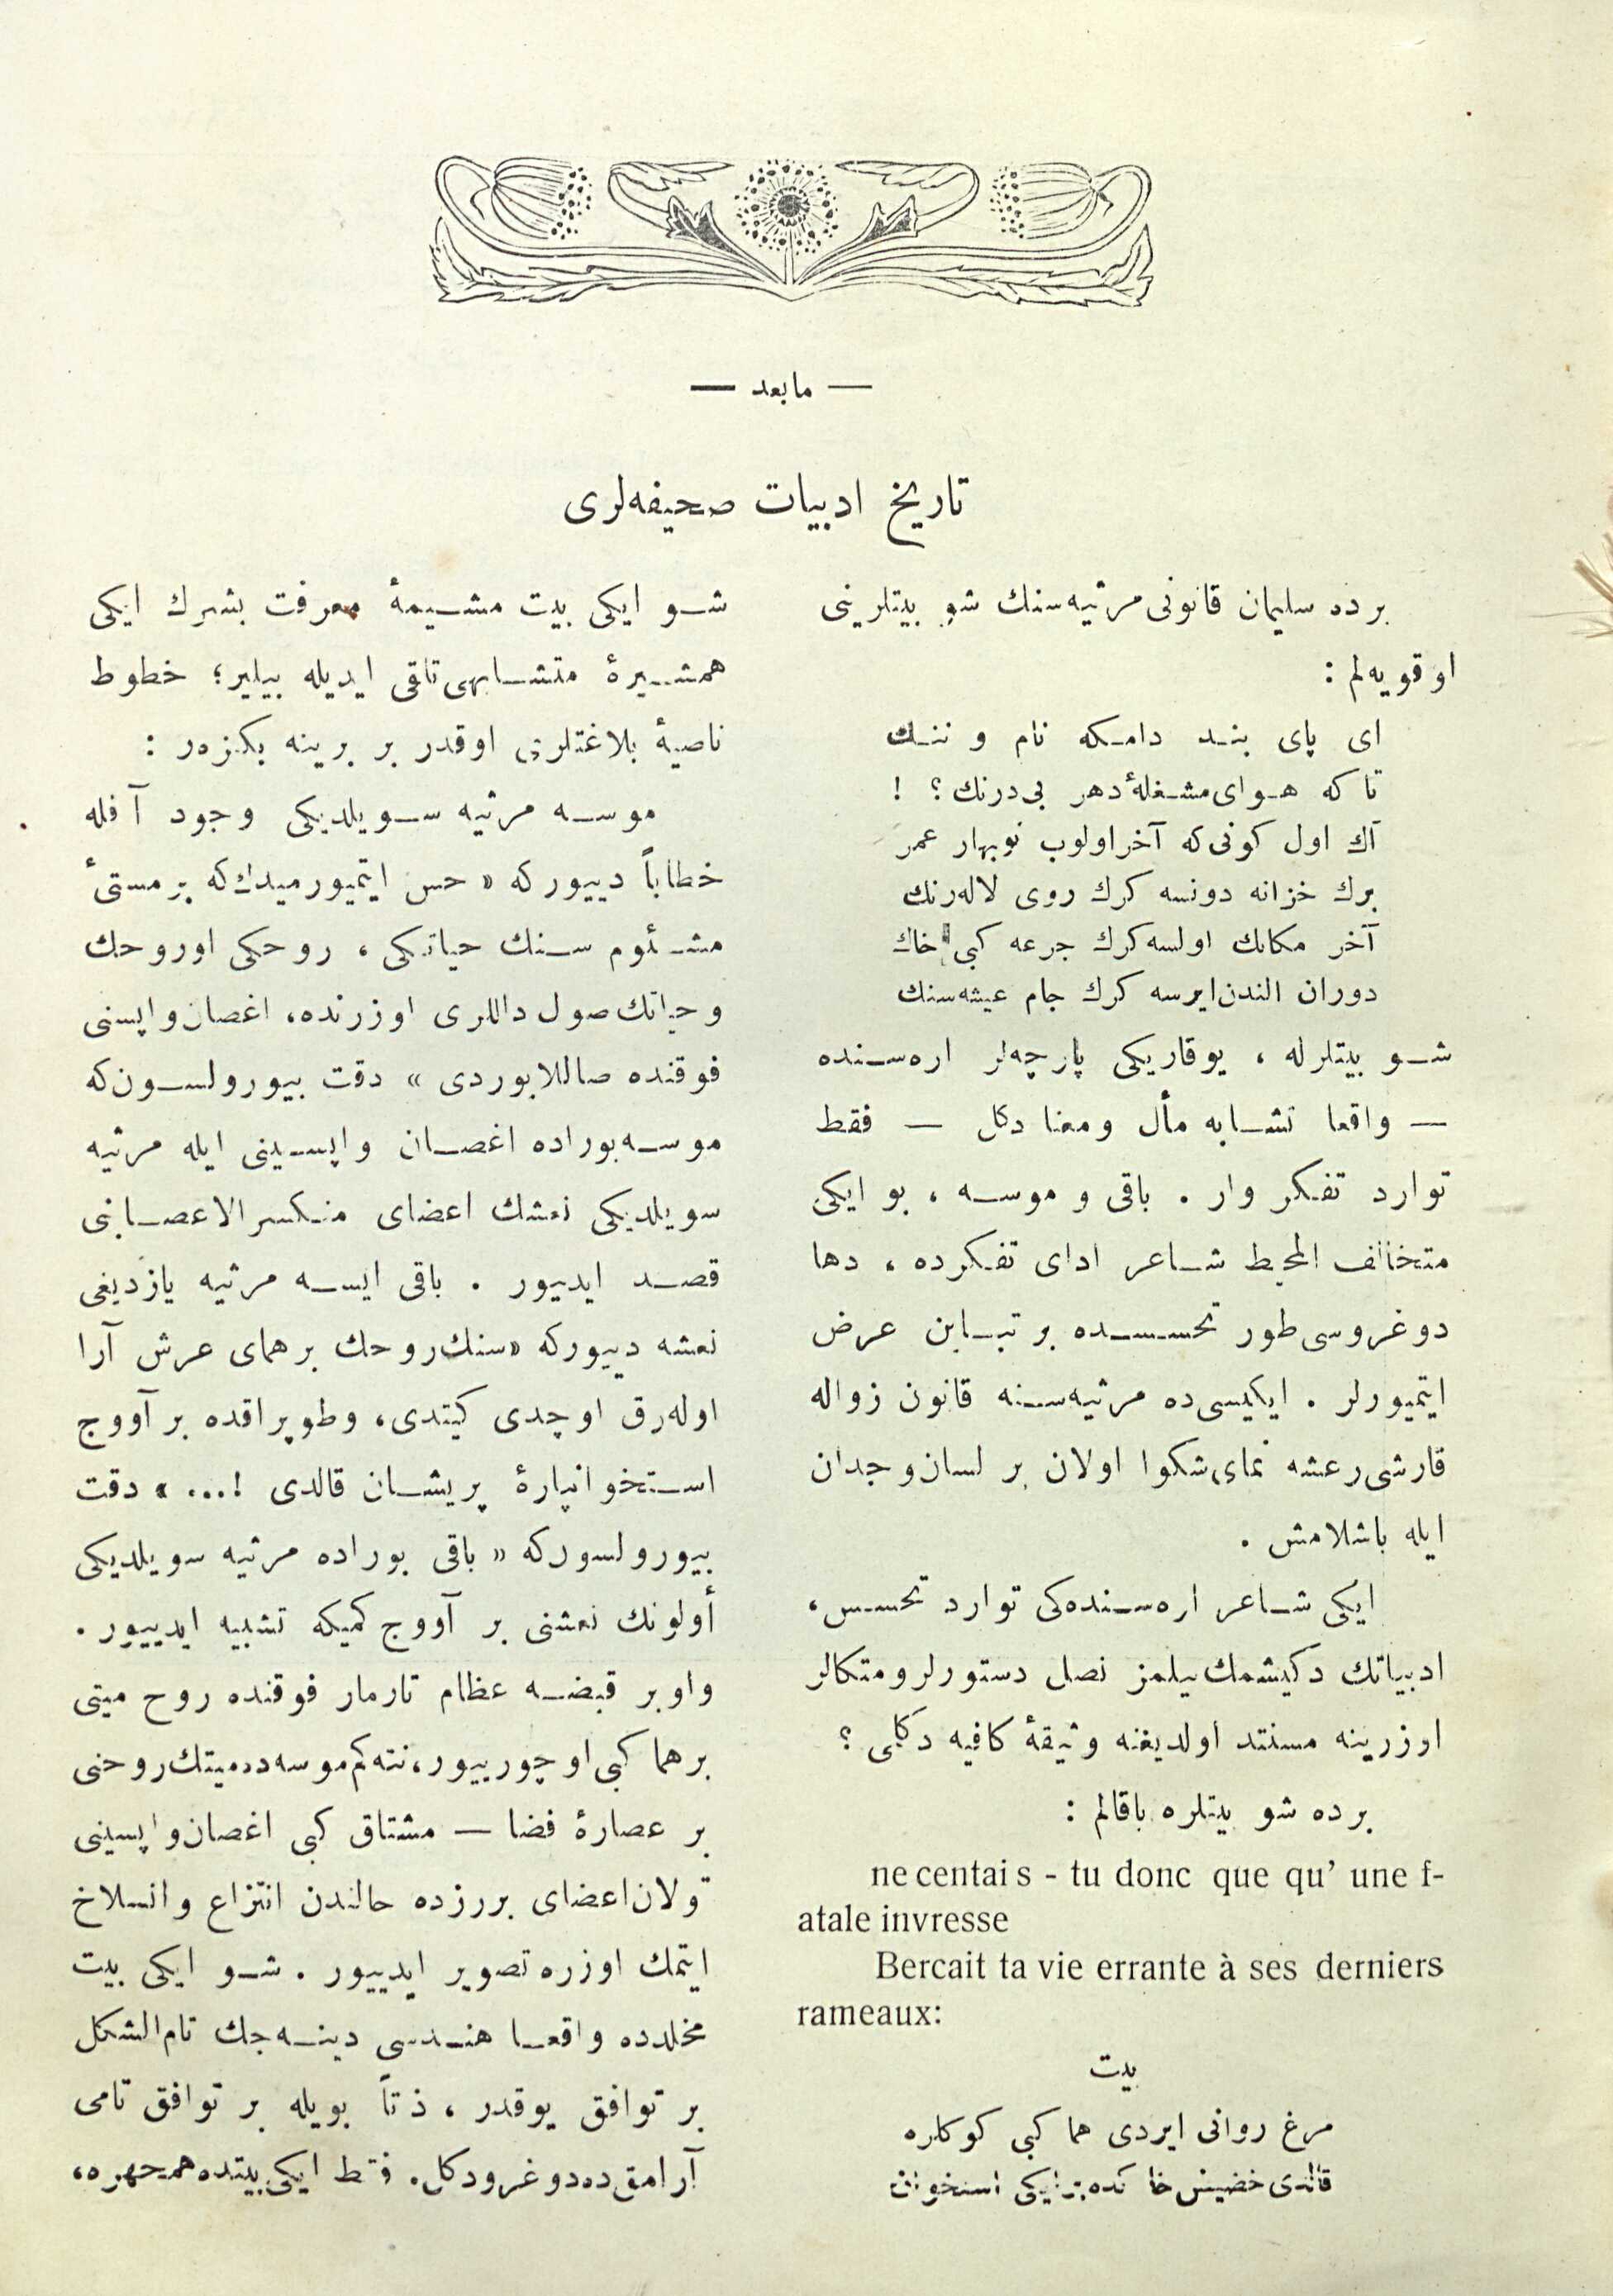 — مابعد —
تاریخ ادبیات صحیفه‌لری
برده سلیمان قانونی مرثیه‌سنك شو بیتلرینی
اوقویه‌لم :
ای پای بند دامکه نام و ننك
تا که هوای مشغلهٔ دهر بی درنك؟ !
آك اول کونی که آخر اولوب نوبهار عمر
برك خزانه دونسه کرك روی لاله‌رنك
آخر مکانك اولسه کرك جرعه کبی خاك
دوران الندن ایرسه کرك جام عیشه سنك
شو بیتلرله ، یوقاریکی پارچه‌لر اره‌سنده
— واقعا تشابه مأل ومعنا دکل — فقط
توارد تفکر وار . باقی و موسه ، بو ایکی
متخالف المحیط شاعر ادای تفکرده ، دها
دوغروسی طور تحسسده بر تباین عرض
ایتمیورلر . ایکیسی ده مرثیه‌سنه قانون زواله
قارشی رعشه نمای شکوا اولان بر لسان وجدان
ایله باشلامش .
ایکی شاعر اره‌سنده‌کی توارد تحسس،
ادبیاتك دکیشمك بیلمز نصل دستورلر ومتکالر
اوزرینه مستند اولدیغنه وثیقهٔ کافیه دکلمی ؟
برده شو بیتلره باقالم :
ne centai s - tu donc que qu' une f-
atale invresse
Bercait ta vie errante à ses derniers
rameaux:
بیت
مرغ روانی ایردی هما کبی کوکلره
قالدی خضیض خاكده بر ایکی استخوان
شو ایکی بیت مشیمهٔ معرفت بشرك ایکی
همشیرهٔ متشابهی تلقی ایدیله بیلیر؛ خطوط
ناصیهٔ بلاغتلری اوقدر بر برینه بکزه‌ر :
موسه مرثیه سویلدیکی وجود آفله
خطاباً دییورکه « حس ایتمیورمیدك که بر مستیٔ
مشئوم سنك حیاتکی ، روحکی اوروحك
وحیاتك صول داللری اوزرنده، اغصان واپسنی
فوقنده صاللایوردی » دقت بیورولسون که
موسه بوراده اغصان واپسینی ایله مرثیه
سویلدیکی نعشك اعضای منکسر الاعصابنی
قصد ایدیور . باقی ایسه مرثیه یازدیغی
نعشه دییورکه «سنك روحك بر همای عرش آرا
اوله‌رق اوچدی کیتدی، وطوپراقده بر آووج
استخوانپارهٔ پریشان قالدی !... » دقت
بیورولسورکه « باقی بوراده مرثیه سویلدیکی
أولونك نعشنی بر آووج کمیکه تشبیه ایدییور .
واوبر قبضه عظام تارمار فوقنده روح میتی
بر هما کبی اوچورییور، نته‌کم موسه ده میتك روحنی
بر عصارهٔ فضا — مشتاق کبی اغصان واپسینی
اولان اعضای برزده حالندن انتزاع وانسلاخ
ایتمك اوزره تصویر ایدییور . شو ایکی بیت
مخلدده واقعا هندسی دینه‌جك تام الشکل
بر توافق یوقدر ، ذتاً بویله بر توافق تامی
آرامق ده دوغرو دکل. فقط ایکی بیتده همچهره،